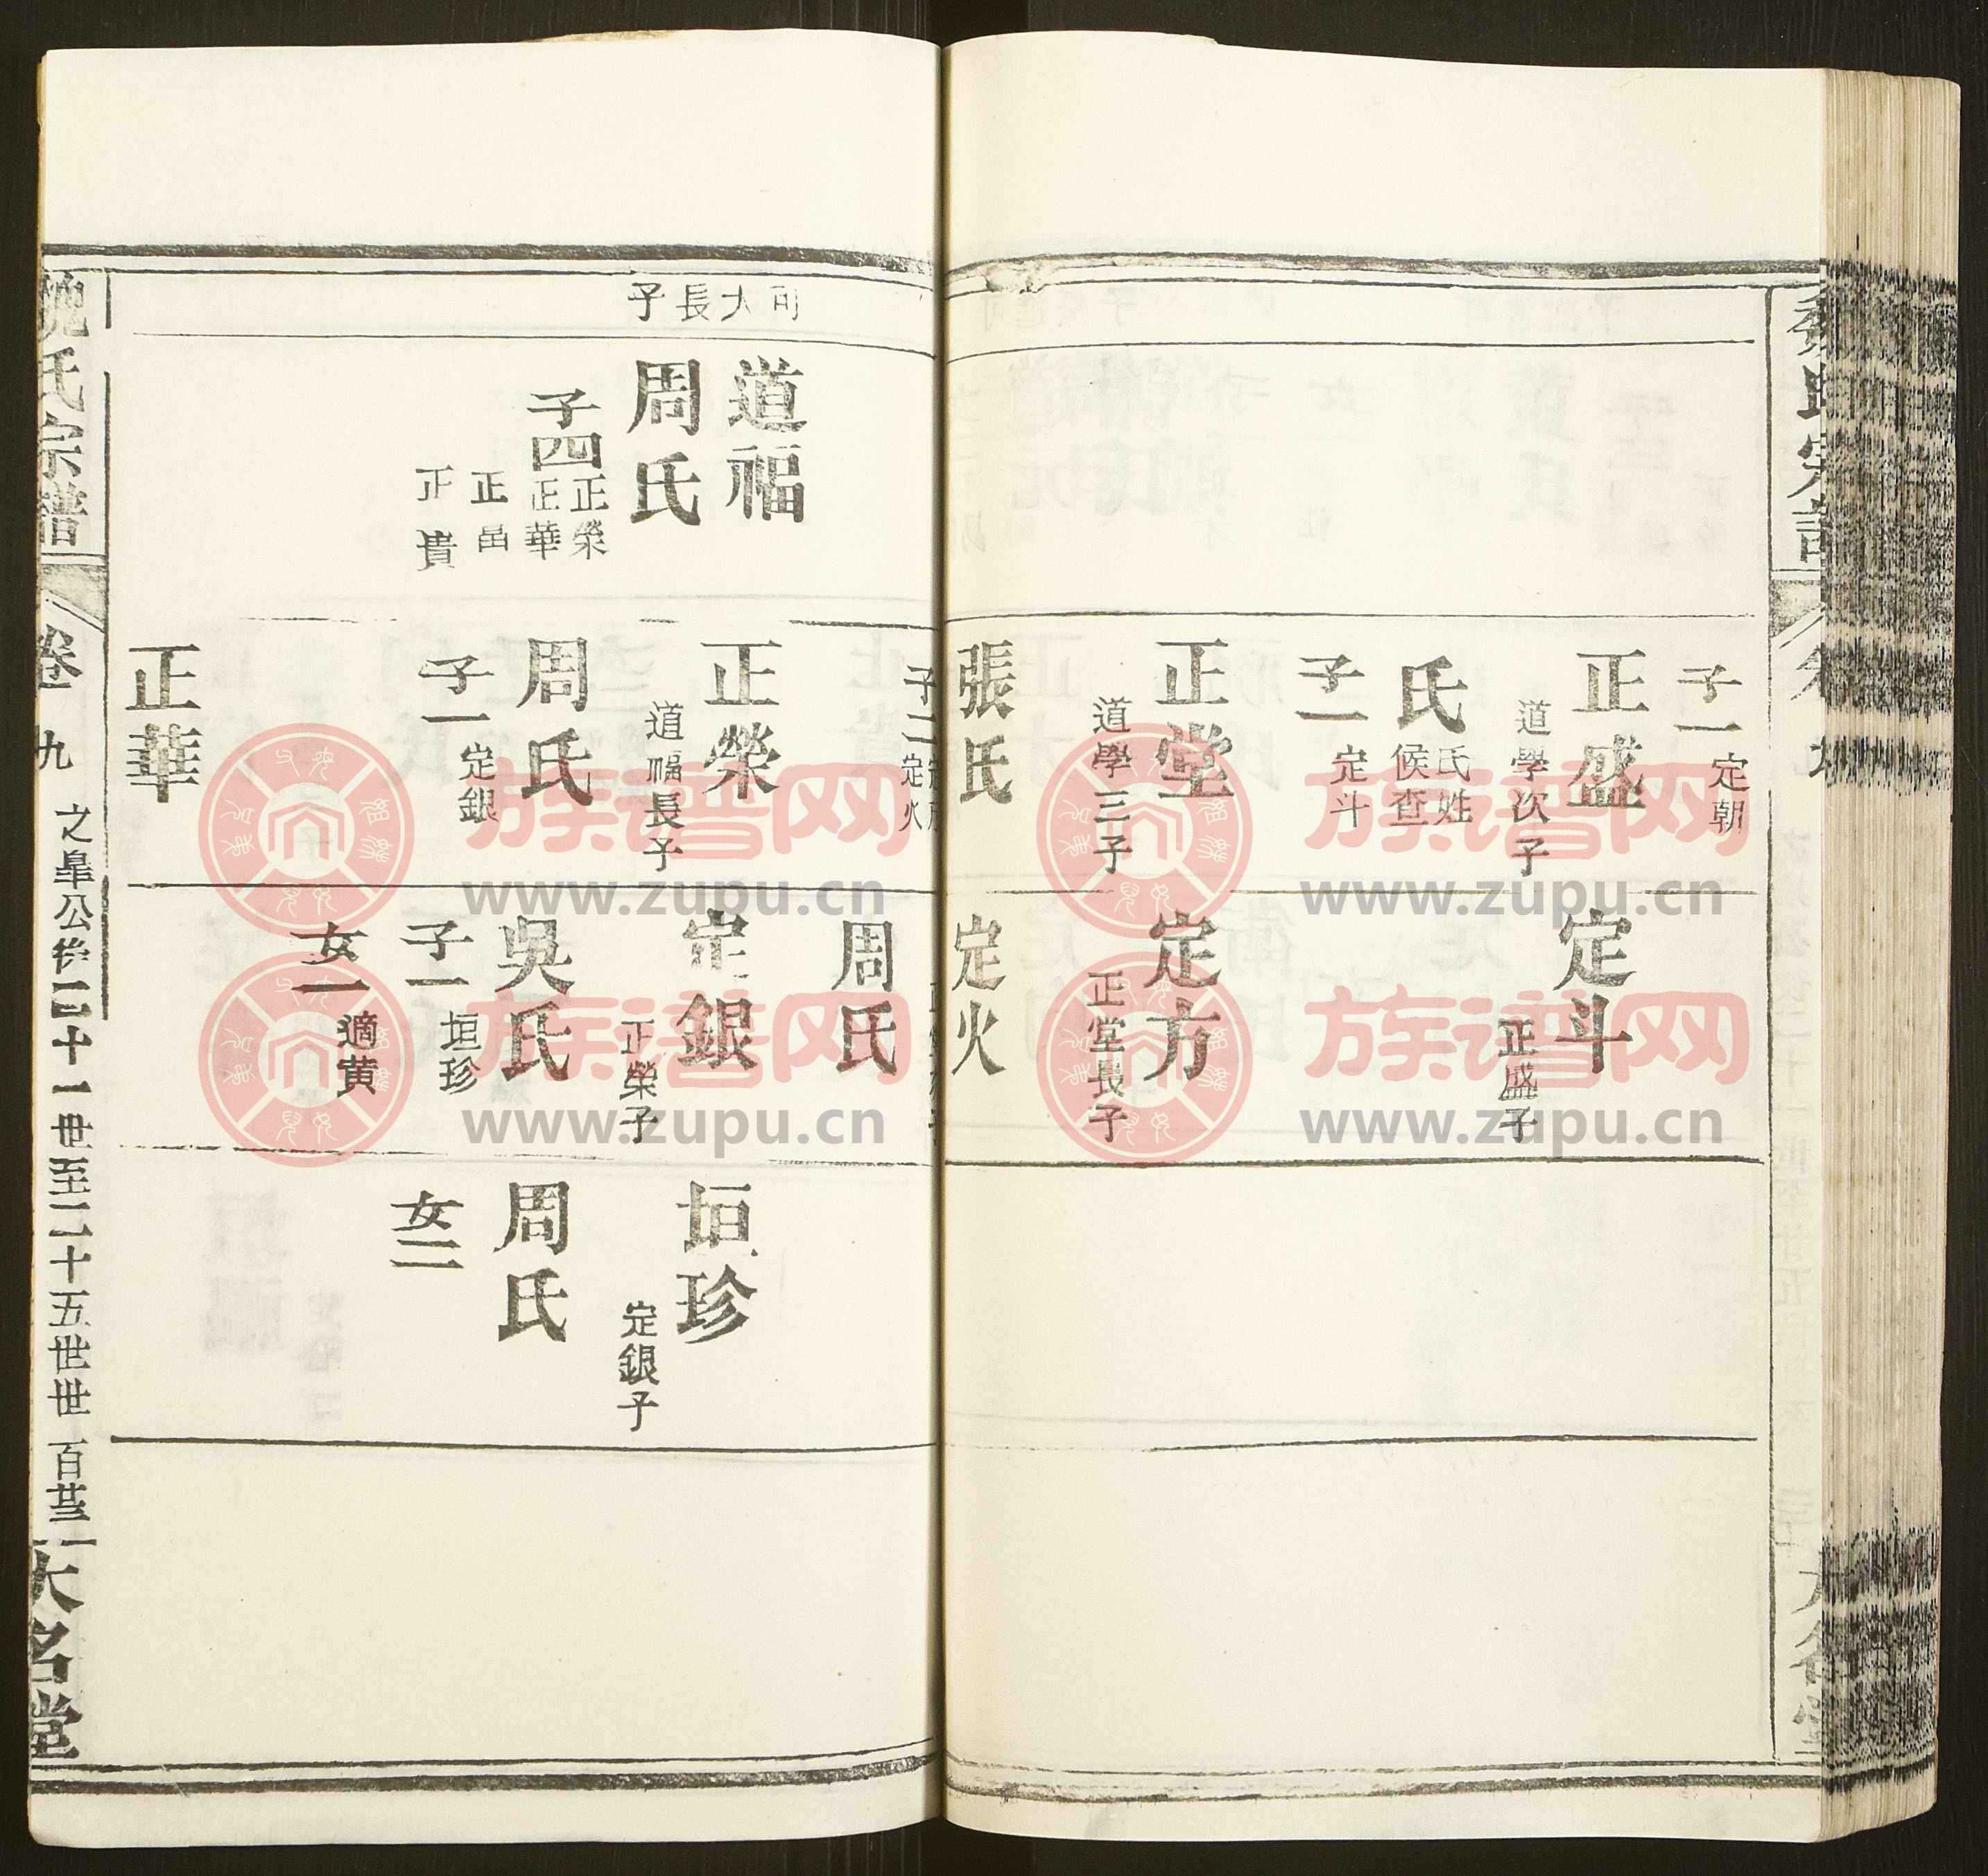 子一 定朝
正盛 道學次子
氏 氏姓
候查
子一 定斗
正堂 道學三子
張氏
子二
定火
定斗 正盛子
定方 正堂長子
定火
大長子
道福
周氏
子四 正榮
正華
正昌
正貴
正榮 道福長子
周氏
子一 定銀
正華
周氏
定銀 正榮子
吳氏
子一 垣珍
女一 適黄
垣珍 定銀子
周氏
女二
氏宗譜
卷九
之皐公後二十一世至二十五世世 百廿三
大名堂
族谱网
www.zupu.cn
族谱网
www.zupu.cn
族谱网
www.zupu.cn
族谱网
www.zupu.cn